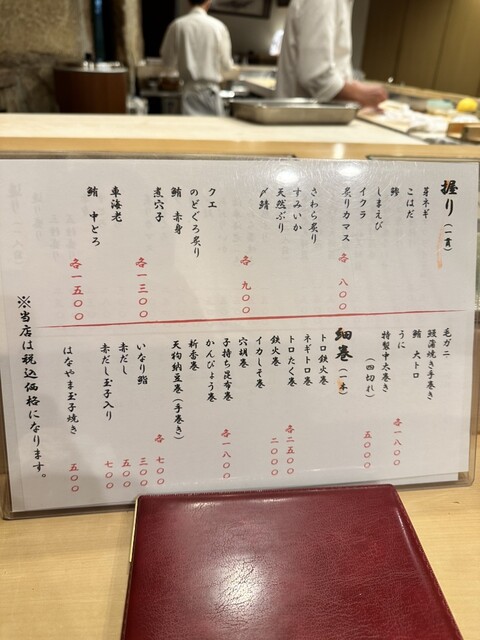 握り(一貫)
芽ネギ
こはだ
鯵
しまえび
イクラ
炙りカマス
各 八〇〇
さわら炙り
すみいか
天然ぶり
〆鯖
各 九〇〇
クエ
のどぐろ炙り
鮪 赤身
煮穴子
各一三〇〇
車海老
鮪 中とろ
各一五〇〇
毛ガニ
鰻蒲焼き手巻き
鮪 大トロ
うに
各一八〇〇
特製中太巻き
(四切れ)
五〇〇〇
細巻(一本)
トロ鉄火巻
ネギトロ巻
トロたく巻
各二五〇〇
鉄火巻
二〇〇〇
イカしそ巻
穴胡巻
子持ち昆布巻
各一八〇〇
かんぴょう巻
新香巻
天狗納豆巻(手巻き)
各 七〇〇
いなり鮨
三〇〇
赤だし
五〇〇
赤だし玉子入り
七〇〇
はなやま玉子焼き
五〇〇
※当店は税込価格になります。